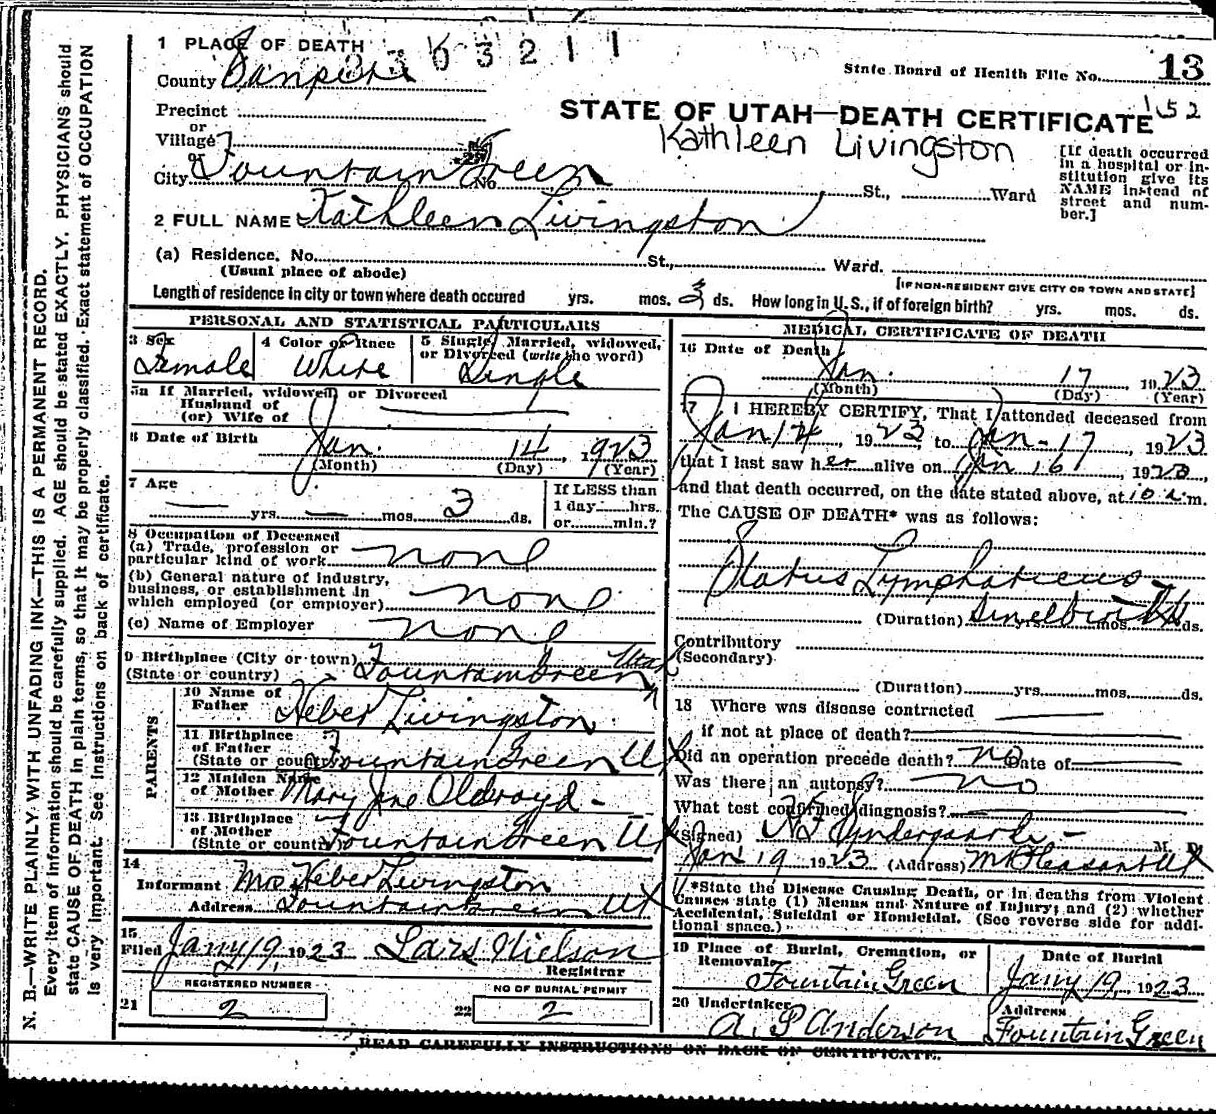 1 PLACE OF DEATH
County Sanpete
State Board of Health File No. 13
152
Precinct
or
Village
or
City Fountain Green No. St., Ward
STATE OF UTAH—DEATH CERTIFICATE
Kathleen Livingston
[If death occurred
in a hospital or in-
stitution give its
NAME instead of
street and num-
ber.]
2 FULL NAME Kathleen Livingston
(a) Residence. No. St., Ward.
(Usual place of abode)
[IF NON-RESIDENT GIVE CITY OR TOWN AND STATE]
Length of residence in city or town where death occured yrs. mos. 3 ds. How long in U.S., if of foreign birth? yrs. mos. ds.
PERSONAL AND STATISTICAL PARTICULARS
3 Sex Female
4 Color or Race White
5 Single, Married, widowed,
or Divorced (write the word)
Single
5a If Married, widowed, or Divorced
Husband of
(or) Wife of
6 Date of Birth
Jan. 14, 1923
(Month) (Day) (Year)
7 Age
yrs. mos. 3 ds.
If LESS than
1 day hrs.
or min.?
8 Occupation of Deceased
(a) Trade, profession or
particular kind of work none
(b) General nature of industry,
business, or establishment in
which employed (or employer) none
(c) Name of Employer none
9 Birthplace (City or town)
(State or country) Fountain Green Utah
PARENTS
10 Name of
Father Heber Livingston
11 Birthplace
of Father
(State or country) Fountain Green Ut
12 Maiden Name
of Mother Mary Jane Oldroyd -
13 Birthplace
of Mother
(State or country) Fountain Green Ut
14
Informant Mrs Heber Livingston
Address Fountain Green Ut
15
Filed Jany 19, 1923 Lars Nielson
Registrar
REGISTERED NUMBER
21 2
NO OF BURIAL PERMIT
22 2
MEDICAL CERTIFICATE OF DEATH
16 Date of Death
Jan. 17, 1923
(Month) (Day) (Year)
17 I HEREBY CERTIFY, That I attended deceased from
Jan 14, 1923 to Jan - 17 1923
that I last saw her alive on Jan 16, 1923,
and that death occurred, on the date stated above, at 10 a.m.
The CAUSE OF DEATH* was as follows:
Status Lymphaticus
(Duration) Since birth yrs. mos. ds.
Contributory
(Secondary)
(Duration) yrs. mos. ds.
18 Where was disease contracted
if not at place of death?
Did an operation precede death? no Date of
Was there an autopsy? no
What test confirmed diagnosis?
(Signed) M. D.
Jan 19 1923 (Address) Mt Pleasant Ut
*State the Disease Causing Death, or in deaths from Violent
Causes state (1) Means and Nature of Injury; and (2) whether
Accidental, Suicidal or Homicidal. (See reverse side for addi-
tional space.)
19 Place of Burial, Cremation, or
Removal Fountain Green
Date of Burial
Jany 19, 1923
20 Undertaker
A. P Anderson
Address
Fountain Green
READ CAREFULLY INSTRUCTIONS ON BACK OF CERTIFICATE.
N. B.—WRITE PLAINLY, WITH UNFADING INK—THIS IS A PERMANENT RECORD.
Every item of information should be carefully supplied. AGE should be stated EXACTLY. PHYSICIANS should
state CAUSE OF DEATH in plain terms, so that it may be properly classified. Exact statement of OCCUPATION
is very important. See instructions on back of certificate.